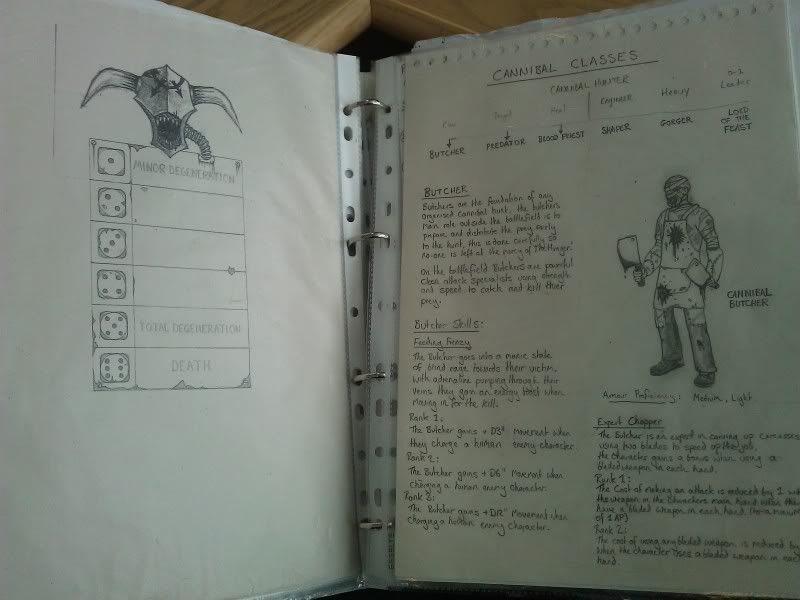 MINOR DEGENERATION
TOTAL DEGENERATION
DEATH
CANNIBAL CLASSES
CANNIBAL HUNTER
0-1
Leader
ENGINEER
Heavy
Heal
BUTCHER
PREDATOR
BLOOD PRIEST
SHAPER
GORGER
LORD
OF THE
FEAST
BUTCHER
Butchers are the foundation of any
organised cannibal hunt, the butchers
main role outside the battlefield is to
prepare and distribute the prey fairly
to the hunt, this is done carefully so
no-one is left at the mercy of 'The Hunger'.
On the battlefield Butchers are powerful
close attack specialists using strength
and speed to catch and kill their
prey.
Butcher Skills:
Feeding Frenzy
The Butcher goes into a manic state
of blind rage towards their victim,
with adrenaline pumping through their
veins they gain an energy boost when
moving in for the kill.
Rank 1:
The Butcher gains + D3" Movement when
they charge a human enemy character.
Rank 2:
The Butcher gains + D6" Movement when
charging a human enemy character.
Rank 3:
The Butcher gains Movement when
charging a human enemy character.
CANNIBAL
BUTCHER
Armour Proficiency: Medium, Light
Expert Chopper
The Butcher is an expert in carving up carcasses
using two blades to speed up the job,
the character gains a bonus when using a
bladed weapon in each hand.
Rank 1:
The cost of making an attack is reduced by 1 with
the weapon in the characters main hand when they
have a bladed weapon in each hand. (to a minimum
of 1 AP)
Rank 2:
The cost of using any bladed weapon is reduced by
when the character uses a bladed weapon in each
hand.